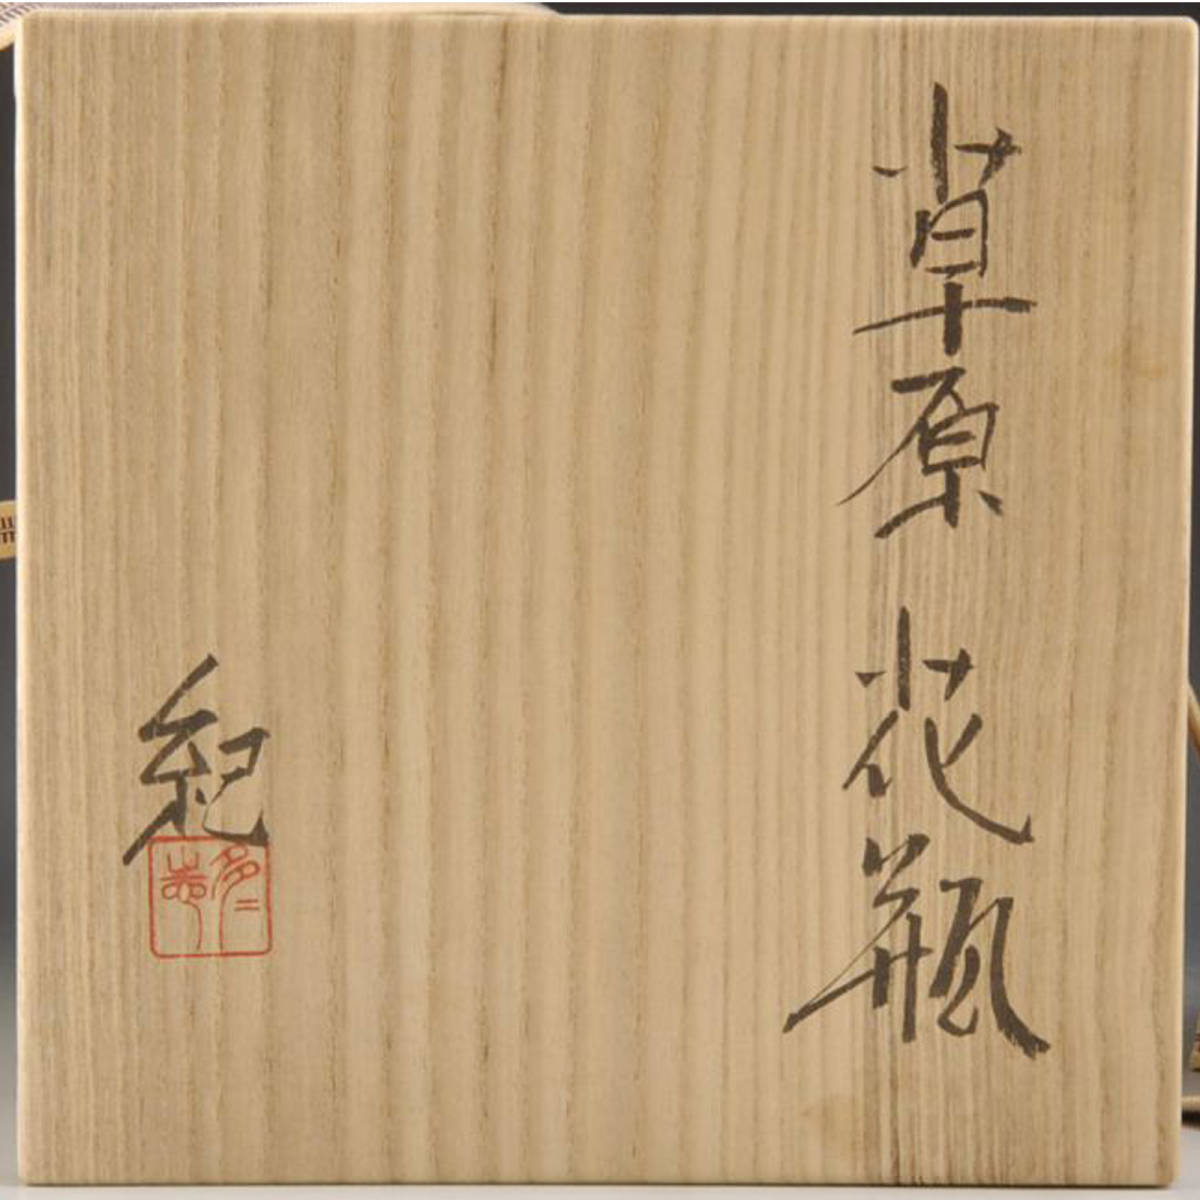 草原花瓶
紀